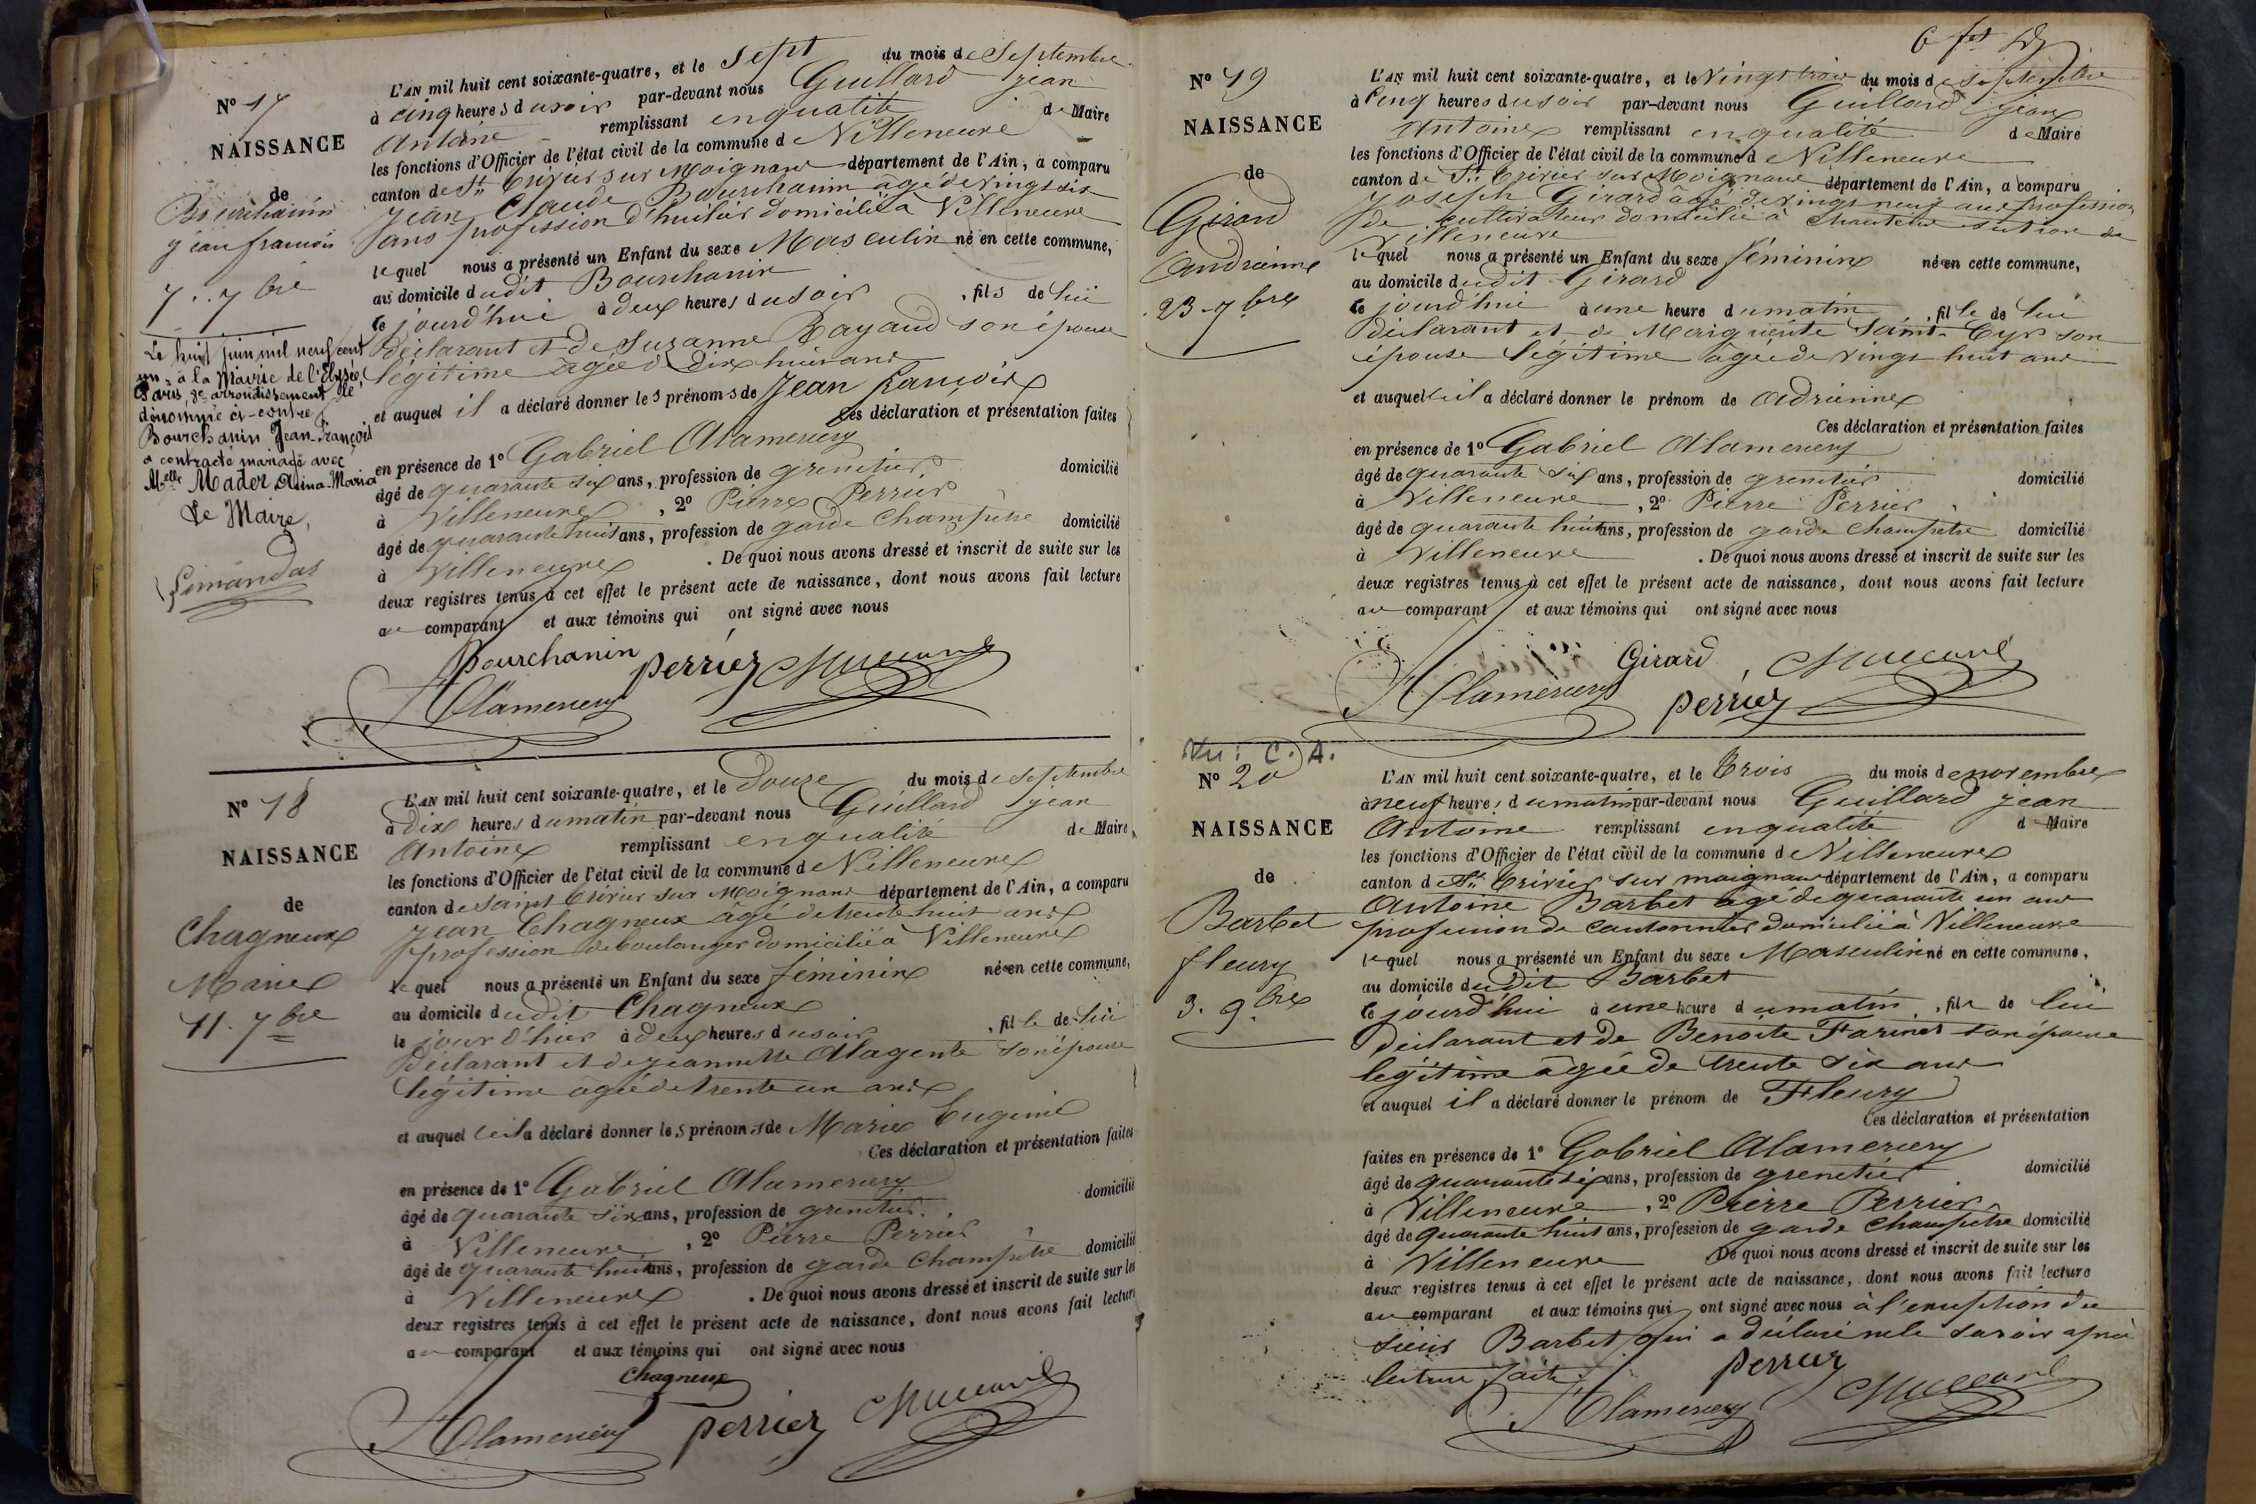 N° 17
NAISSANCE
de
Bourchanin
jean françois
7. 7bre
Le huit juin mil neuf cent
un, à la Mairie de l'Élysée,
Paris, 8e arrondissement, le
dénommé ci-contre
Bourchanin Jean-François
a contracté mariage avec
Melle Mader Anna-Maria
Le Maire,
L'AN mil huit cent soixante-quatre, et le sept du mois de Septembre
à cinq heures du soir par-devant nous Guillard jean
Antoine remplissant en qualité de Maire
les fonctions d'Officier de l'état civil de la commune de Villeneuve
canton de St Trivier sur Moignans département de l'Ain, a comparu
Jean Claude Bourchanin âgé de vingt six
sans profession d'huilier domicilié à Villeneuve
lequel nous a présenté un Enfant du sexe Masculin né en cette commune,
au domicile dudit Bourchanin
ce jourd'hui à deux heures du soir, fils de lui
déclarant et de Suzanne Rayaud son épouse
légitime âgée de dix huit ans
et auquel il a déclaré donner les prénoms de Jean françois
Ces déclaration et présentation faites
en présence de 1° Gabriel Alamercery
âgé de quarante six ans, profession de grenetier domicilié
à Villeneuve, 2° Pierre Perrier
âgé de quarante huit ans, profession de garde champêtre domicilié
à Villeneuve. De quoi nous avons dressé et inscrit de suite sur les
deux registres tenus à cet effet le présent acte de naissance, dont nous avons fait lecture
au comparant et aux témoins qui ont signé avec nous
Bourchanin Perrier
Alamercery
N° 18
NAISSANCE
de
Chagneux
Marie
11. 7bre
L'AN mil huit cent soixante-quatre, et le douze du mois de septembre
à dix heures du matin par-devant nous Guillard jean
Antoine remplissant en qualité de Maire
les fonctions d'Officier de l'état civil de la commune de Villeneuve
canton de Saint Trivier sur Moignans département de l'Ain, a comparu
Jean Chagneux âgé de trente huit ans
profession de boulanger domicilié à Villeneuve
lequel nous a présenté un Enfant du sexe féminin née en cette commune,
au domicile dudit Chagneux
le jour d'hier à deux heures du soir, fille de lui
déclarant et de jeannette Alagente son épouse
légitime âgée de trente un ans
et auquel il a déclaré donner les prénoms de Marie Eugenie
Ces déclaration et présentation faites
en présence de 1° Gabriel Alamercery
âgé de quarante six ans, profession de grenetier domicilié
à Villeneuve, 2° Pierre Perrier
âgé de quarante huit ans, profession de garde champêtre domicilié
à Villeneuve. De quoi nous avons dressé et inscrit de suite sur les
deux registres tenus à cet effet le présent acte de naissance, dont nous avons fait lecture
au comparant et aux témoins qui ont signé avec nous
Chagneux
Alamercery Perrier
N° 19
NAISSANCE
de
Girard
Andrienne
23. 7bre
L'AN mil huit cent soixante-quatre, et le vingt trois du mois de septembre
à Cinq heures du soir par-devant nous Guillard jean
Antoine remplissant en qualité de Maire
les fonctions d'Officier de l'état civil de la commune de Villeneuve
canton de St Trivier sur Moignans département de l'Ain, a comparu
Joseph Girard âgé de vingt neuf ans profession
de cultivateur domicilié à Chanteins section de
Villeneuve
lequel nous a présenté un Enfant du sexe féminin née en cette commune,
au domicile dudit Girard
ce jourd'hui à une heure du matin, fille de lui
déclarant et de Marguerite Saint-Cyr son
épouse légitime âgée de vingt huit ans
et auquel il a déclaré donner le prénom de Adrienne
Ces déclaration et présentation faites
en présence de 1° Gabriel Alamercery
âgé de quarante six ans, profession de grenetier domicilié
à Villeneuve, 2° Pierre Perrier
âgé de quarante huit ans, profession de garde champetre domicilié
à Villeneuve. De quoi nous avons dressé et inscrit de suite sur les
deux registres tenus à cet effet le présent acte de naissance, dont nous avons fait lecture
au comparant et aux témoins qui ont signé avec nous
Girard
Alamercery Perrier
Vu: C. A.
N° 20
NAISSANCE
de
Barbet
fleury
3. 9bre
L'AN mil huit cent soixante-quatre, et le Trois du mois de novembre
à neuf heures du matin par-devant nous Guillard jean
Antoine remplissant en qualité d Maire
les fonctions d'Officier de l'état civil de la commune de Villeneuve
canton de St Trivier sur moignans département de l'Ain, a comparu
Antoine Barbet âgé de quarante un ans
profession de cantonnier domicilié à Villeneuve
lequel nous a présenté un Enfant du sexe Masculin né en cette commune,
au domicile dudit Barbet
ce jourd'hui à une heure du matin, fils de lui
déclarant et de Benoite Farinet son épouse
légitime âgée de trente six ans
et auquel il a déclaré donner le prénom de Fleury
Ces déclaration et présentation
faites en présence de 1° Gabriel Alamercery
âgé de quarante six ans, profession de grenetier domicilié
à Villeneuve, 2° Pierre Perrier
âgé de quarante huit ans, profession de garde champetre domicilié
à Villeneuve De quoi nous avons dressé et inscrit de suite sur les
deux registres tenus à cet effet le présent acte de naissance, dont nous avons fait lecture
au comparant et aux témoins qui ont signé avec nous à l'exception du
sieur Barbet qui a déclaré ne le savoir après
lecture faite.
Perrier
Alamercery